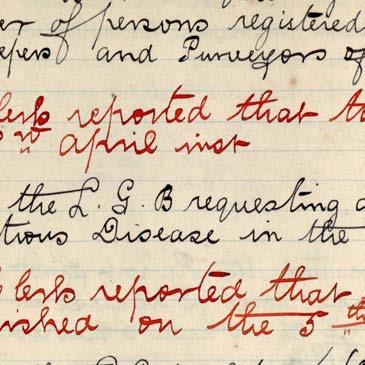 er of persons registered
epers and Purveyors of
lerk reported that t
rd April inst
the L. G. B requesting a
tious Disease in the
Clerk reported that
ished on the 5th